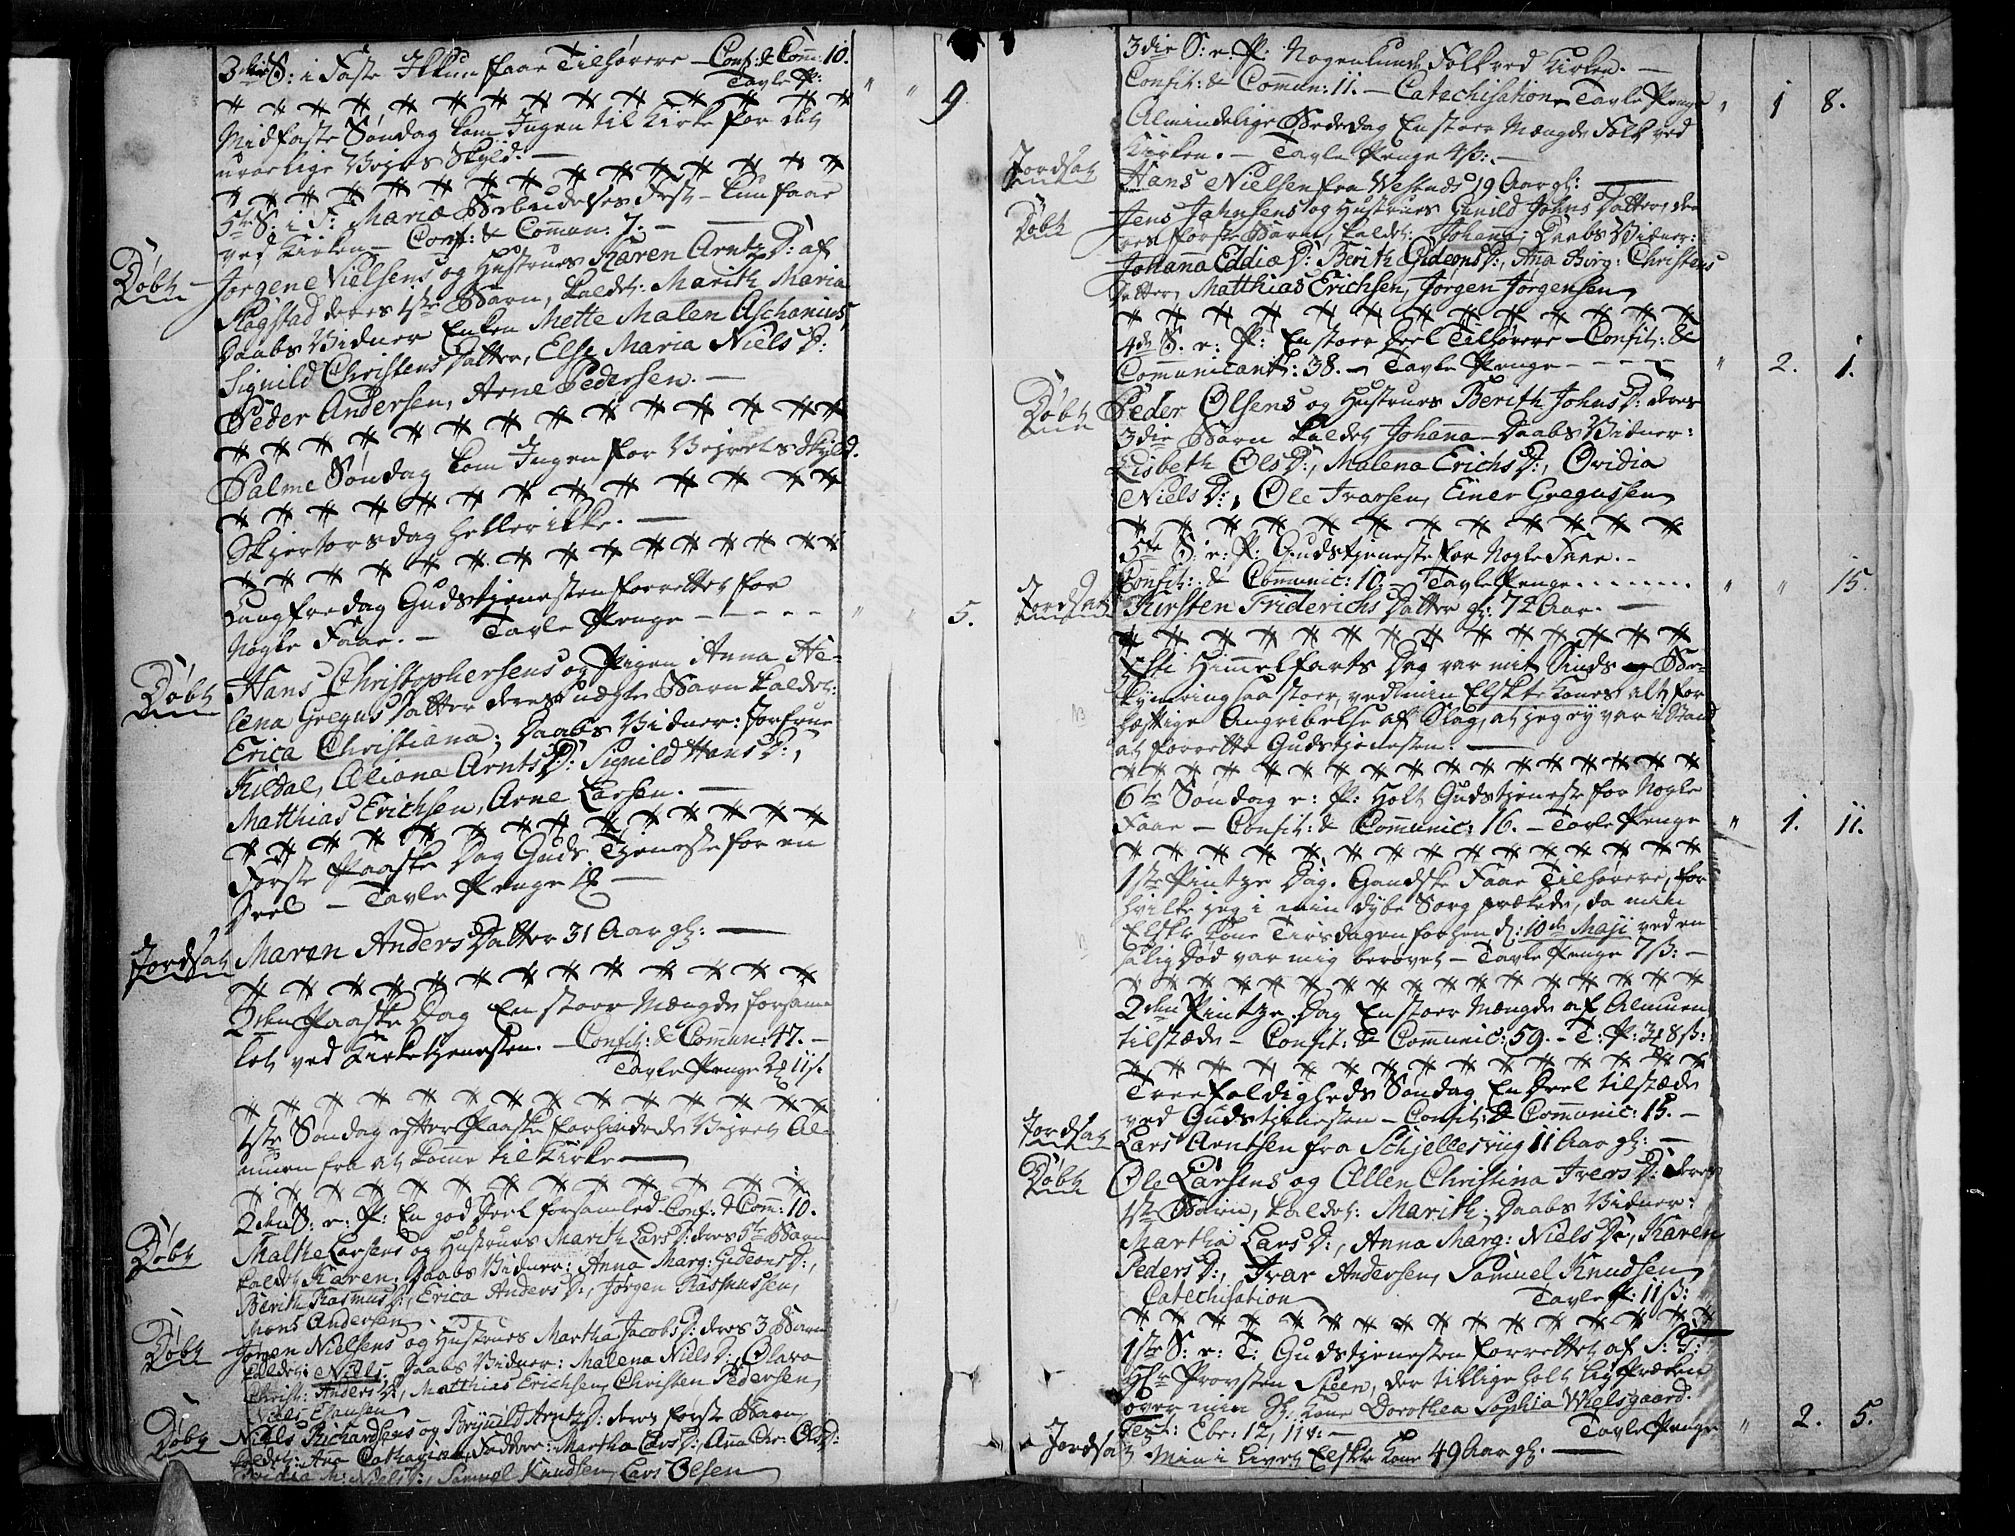 3die S: i Faste Ikkun faae Tilhørere – Conf: & Com̄: 10.
Tavle P: " " 9
Midfaste Søndag kom Ingen til Kirke for det
urolige Vejrs Skyld. –
5te S: i F: Mariæ Bebudelses Fest – kun faae
ved Kirken – Conf: & Com̄un: 7. –
Døbt Jørgene Nielsens og Hustrues Karen Arntz D: af
Slogstad deres 1ste Barn, kaldet: Marith Maria
Daabs Vidner Enken Mette Malen Aschanius,
Signild Christens Datter, Else Maria Niels D:
Peder Andersen, Arne Pedersen. –
Palme Søndag kom Ingen for Vejrets Skyld.
Skjertorsdag heller ikke. –
Langfredag Gudstjenesten forrettet for
Nogle Faae. – Tavle Penge – – – – " " 5.
Døbt Hans Christophersens og Pigen Anna He-
lena Gregus Datter deres uægte Barn kaldet:
Erica Christiana; Daabs Vidner: Jorfrue
Kildal, Aliana Arnts D: Signild Hans D:,
Matthias Erichsen, Arne Larsen. –
Første Paaske Dag Guds Tjeneste for en
Deel – Tavle Penge
Jordsat Maren Anders Datter 31 Aar gl: –
2den Paaske Dag En stoer Mængde forsam̄-
let ved Kirketjenesten. – Confit: & Com̄un: 47. –
Tavle Penge 2 11 s.
1ste Søndag efter Paaske forhindrede Vejret Al-
muen fra at kom̄e til Kirke –
2den S: e: P: En god Deel forsamled – Conf: & Com̄: 10.
Døbt Malthe Larsens og Hustrues Marith Lars D: deres 5te Barn
kaldet Karen; Daabs Vidner: Anna Marg: Gideons D:,
Berith Rasmus D:, Erica Anders D:, Jørgen Rasmussen,
Mons Andersen
Døbt Jørgen Nielsens og Hustrues Martha Jacobs D: deres 3 Barn
kaldet: Niels; Daabs Vidner: Malena Niels D:, Olava
Christ: Anders D:, Matthias Erichsen, Christen Pedersen,
Niels Hansen
Døbt Niels Richardsens og Brynild Arntz D: deres første Barn
kaldet: Ana Catharina Faddere: Martha Lars D:, Ana Chr: Ols D:
Ovidia M: Niels D:, Samuel Knudsen, Lars Olsen
3die S: e: P: Nogenlunde Folk ved Kirken. –
Confit: & Com̄un: 11. – Catechisation – Tavle Penge " 1 8.
Almindelige Bededag En stoer Mængde Folk ved
Kirken. – Tavle Penge 4 s: –
Jordsat Hans Nielsen fra Westnes 19 Aar gl: –
Døbt Jens Jahnsens og Hustrues Gunild Johns Datter, de-
res første Barn, kaldet: Johanna; Daabs Vidner:
Johanna Eddiæ D: Berith Gideons D:, Ana Birg: Christens
Datter, Matthias Erichsen, Jørgen Jørgensen,
4de S. e: P: En stoer Deel Tilhørere – Confit: &
Com̄unicant: 38. – Tavle Penge – – – – " 2. 1.
Døbt Peder Olsens og Hustrues Berith Johns D: deres
3die Barn kaldet Johana – Daabs Vidner:
Lisbeth Ols D:, Malena Erichs D:, Ovidia
Niels D:, Ole Ivarsen, Einer Gregussen
5te S: e: P: Gudstjeneste for Nogle Faae. –
Confit: & Com̄unic: 10. – Tavle Penge . . . . . . . " " 15.
Jordsat Kirsten Friderichs Datter gl: 72 Aar. –
Xsti Him̄elfarts Dag var mit Sinds Be-
kym̄ring saa stoer, ved min Elskte Kones alt for
NB hæftige Angribelse af Slag, at jeg ey var i Stand
at forrette Gudstjenesten. –
6te Søndag e: P: Holt Gudstjeneste for Nogle
Faae – Confit: & Com̄unic: 16. – Tavle Penge – " 1. 11.
1ste Pintze Dag. Gandske Faae Tilhørere, for
hvilke jeg i min dybe Sorg prækede, da min
Elskte Kone Tirsdagen forhen d: 10de Maji ved en
salig Død var mig berøvet – Tavle Penge 7 s: –
2den Pintze Dag En stoer Mængde af Almuen
tilstæde – Confit: & Com̄unic: 59. – T: P: 3 8 s:
Treefoldigheds Søndag En Deel tilstæde
ved Gudstjenesten – Confit: & Com̄unic: 15. –
Jordsat Lars Arntsen fra Schjellesviig 11 Aar gl: –
Døbt Ole Larsens og Ellen Christina Ivers D: deres
1ste Barn, kaldet: Marith; Daabs Vidner:
Martha Lars D:, Anna Marg: Niels D:, Karen
Peders D:, Ivar Andersen, Samuel Knudsen
Catechisation Tavle P: 11 s:
1ste S: e: T: Gudstjenesten forrettet af S: T:
Hr Provsten Steen, der tillige holt Liig Præken
over min Sl: Kone Dorothea Sophia Wielsgaard.
Text: Ebr: 12, 11 v: – Tavle Penge " 2. 5.
Jordsat Min i Livet Elskte Kone 49 Aar gl: –